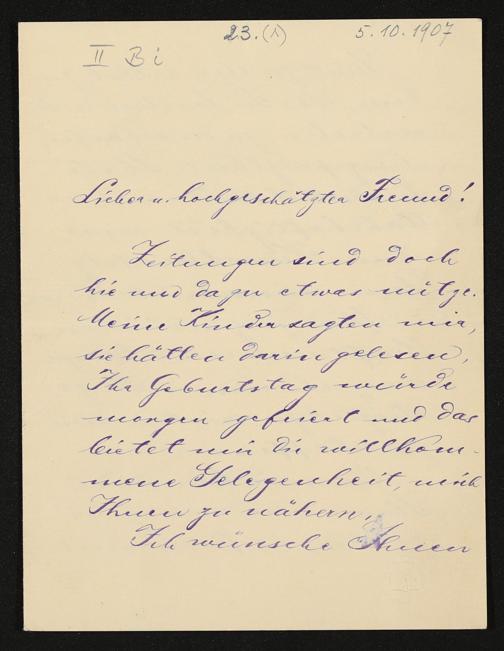 23.(1)
5.10.1907
II Bi
Lieber u. hochgeschätzter Freund!
Zeitungen sind doch
hie und da zu etwas nütze.
Meine Kinder sagten mir,
sie hätten darin gelesen,
Ihr Geburtstag würde
morgen gefeiert und das
bietet mir die willkom-
mene Gelegenheit, mich
Ihnen zu nähern.
Ich wünsche Ihnen